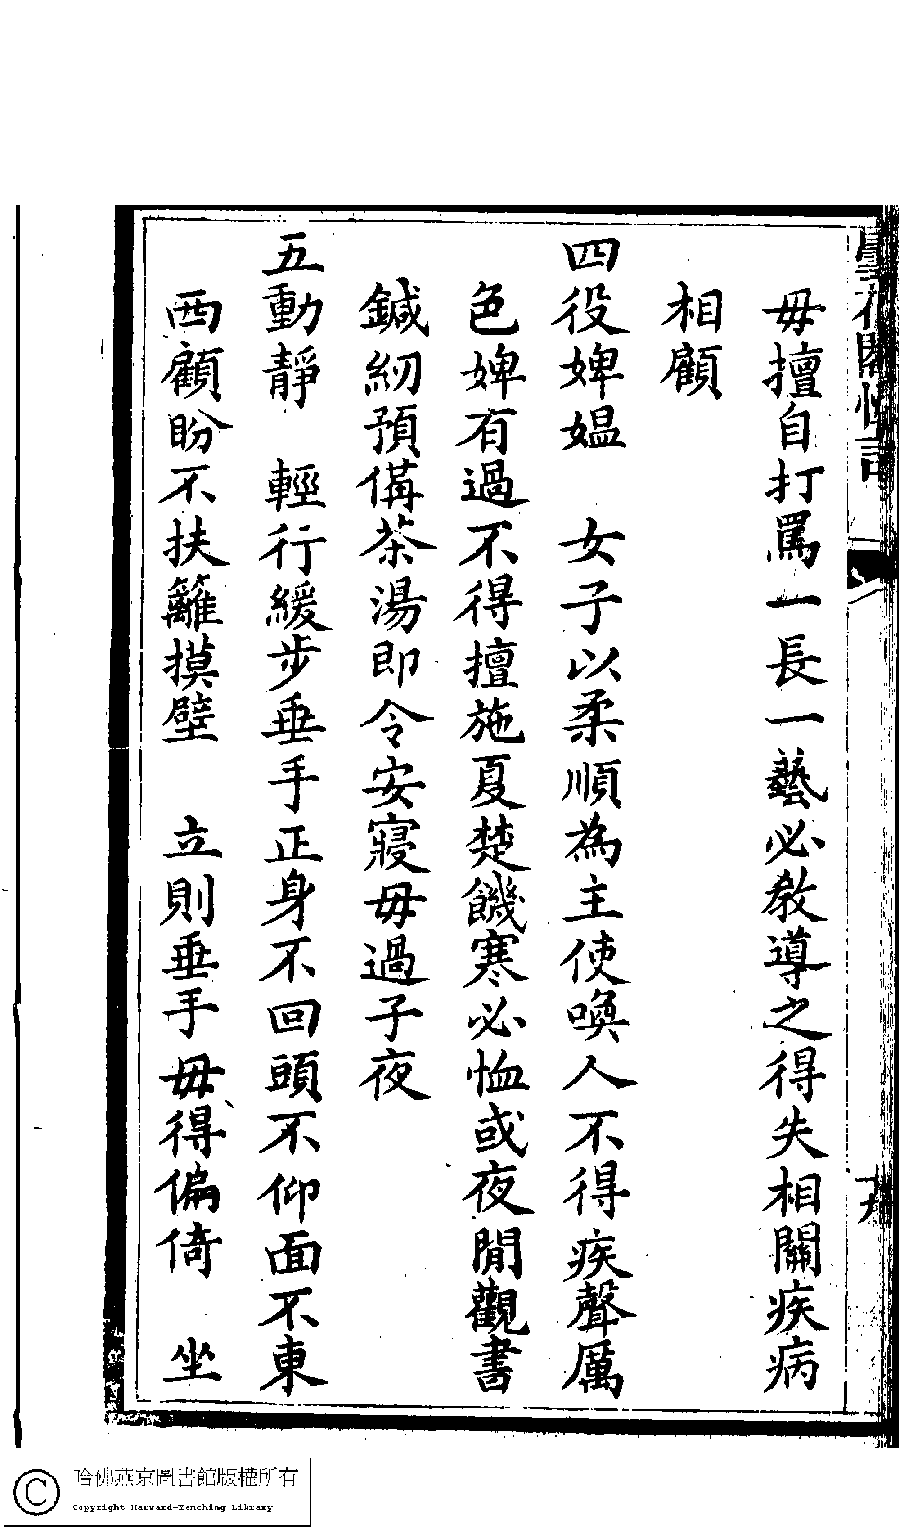 毋擅自打罵一長一藝必教導之得失相關疾病
相顧
四役婢媼　女子以柔順為主使喚人不得疾聲厲
色婢有過不得擅施夏楚饑寒必恤或夜閒觀書
鍼紉預備茶湯即令安寢毋過子夜
五動靜　輕行緩步垂手正身不回頭不仰面不東
西顧盼不扶籬摸壁　立則垂手毋得偏倚　坐
哈佛燕京圖書館版權所有
Copyright Harvard-Yenching Library